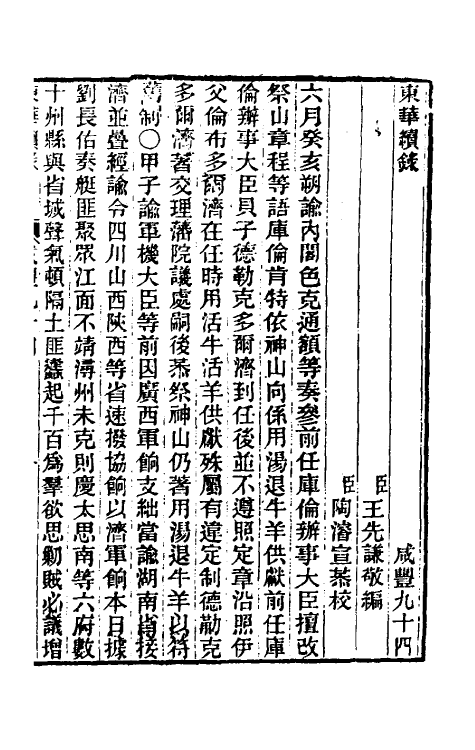 東華續錄　咸豐九十四
臣王先謙敬編
臣陶濬宣恭校
六月癸亥朔諭內閣色克通額等奏參前任庫倫辦事大臣擅改
祭山章程等語庫倫肯特依神山向係用湯退牛羊供獻前任庫
倫辦事大臣貝子德勒克多爾濟到任後並不遵照定章沿照伊
父倫布多爾濟在任時用活牛活羊供獻殊屬有違定制德勒克
多爾濟著交理藩院議處嗣後恭祭神山仍著用湯退牛羊以符
舊制○甲子諭軍機大臣等前因廣西軍餉支絀當諭湖南省接
濟並疊經諭令四川山西陝西等省速撥協餉以濟軍餉本日據
劉長佑奏艇匪聚眾江面不靖潯州未克則慶太思南等六府數
十州縣與省城聲氣頓隔土匪蠭起千百為羣欲思勦賊必議增